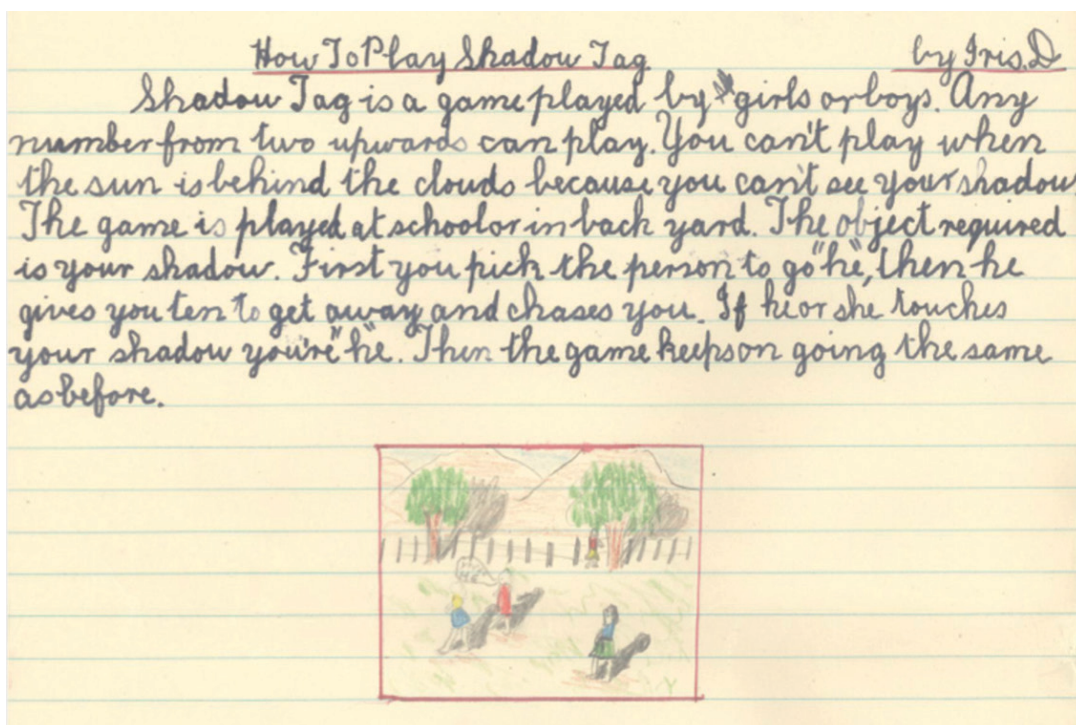 How To Play Shadow Tag by Iris. D
Shadow Tag is a game played by girls or boys. Any
number from two upwards can play. You can't play when
the sun is behind the clouds because you can't see your shadow
The game is played at school or in back yard. The object required
is your shadow. First you pick the person to go "he", then he
gives you ten to get away and chases you. If he or she touches
your shadow you're "he". Then the game keeps on going the same
as before.